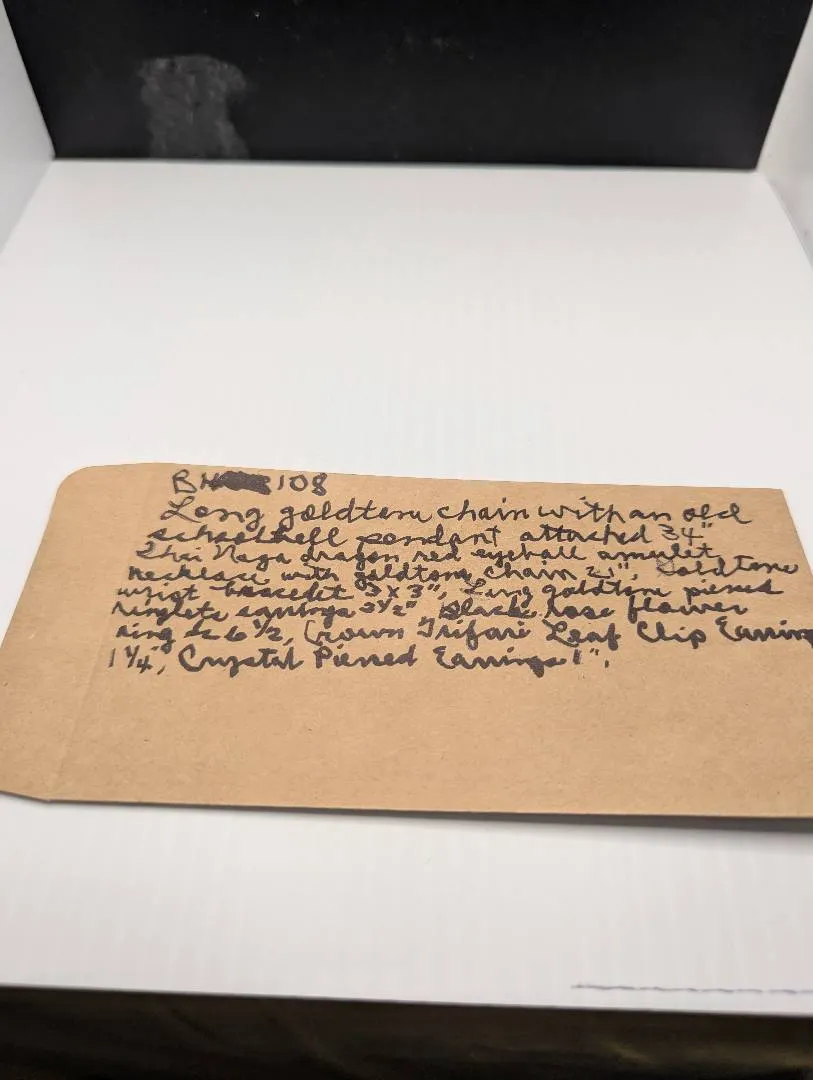 BH 108
Long goldtone chain with an old
schoolbell pendant attached 34"
Thai Naga dragon red eyeball amulet
necklace with goldtone chain 21", Goldtone
wrist bracelet 3 x 3", Long goldtone pierced
ringlets earrings 2½" Black rose flower
ring sz 6 ½, Crown Trifari Leaf Clip Earring
1 ¼", Crystal Pierced Earrings 1",